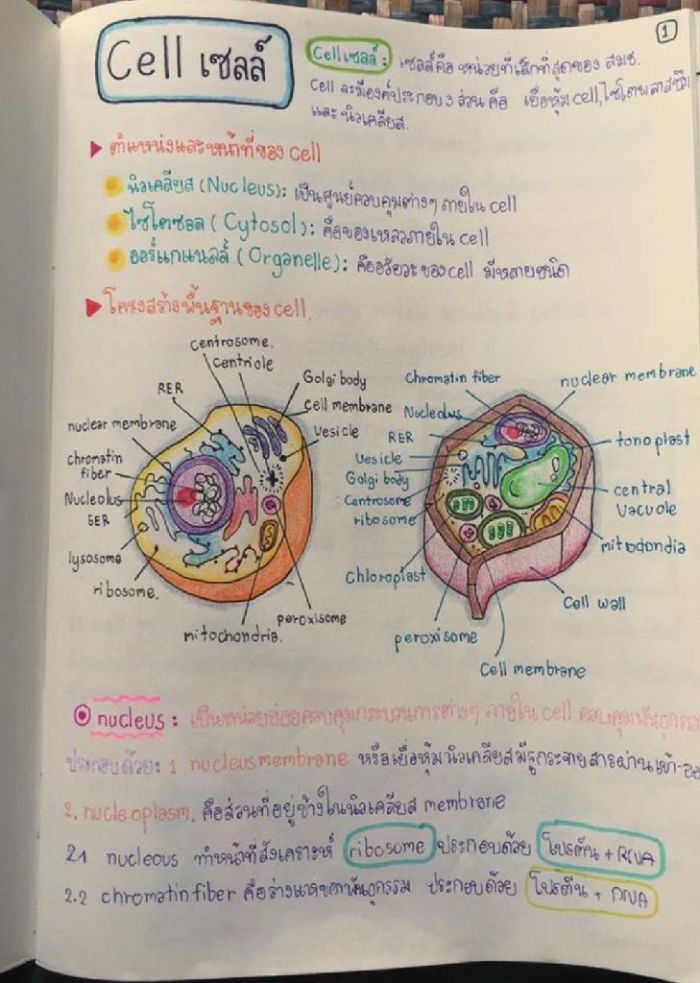 1
Cell เซลล์
Cell เซลล์ : เซลล์คือ หน่วยที่เล็กที่สุดของ สมช.
Cell จะมีองค์ประกอบ 3 ส่วน คือ เยื่อหุ้ม cell, ไซโตพลาสซึม
และ นิวเคลียส.
ตำแหน่งและหน้าที่ของ cell
นิวเคลียส (Nucleus): เป็นศูนย์ควบคุมต่างๆ ภายใน cell
ไซโตซอล (Cytosol): คือของเหลวภายใน cell
ออร์แกแนลล์ (Organelle): คืออวัยวะของ cell มีหลายชนิด
โครงสร้างพื้นฐานของ cell.
centrosome.
centriole
RER
Golgi body
cell membrane
vesicle
nuclear membrane
chromatin
fiber
Nucleolus
SER
lysosome
ribosome.
mitochondria.
peroxisome
Chromatin fiber
nuclear membrane
Nucleolus
RER
Vesicle
Golgi body
Centrosome
ribosome
Chloroplast
peroxisome
Cell membrane
Cell wall
mitodondia
central
vacuole
tonoplast
nucleus : เป็นหน่วยย่อยควบคุมกระบวนการต่างๆ ภายใน cell ควบคุมพันธุกรรม
ประกอบด้วย: 1 nucleus membrane หรือเยื่อหุ้มนิวเคลียสมีรูกระจายสารผ่านเข้า-ออ
2. nucleoplasm. คือส่วนที่อยู่ข้างในนิวเคลียส membrane
2.1 nucleous ทำหน้าที่สังเคราะห์ ribosome ประกอบด้วย โปรตีน + RNA
2.2 chromatin fiber คือร่างแหของพันธุกรรม ประกอบด้วย โปรตีน + DNA